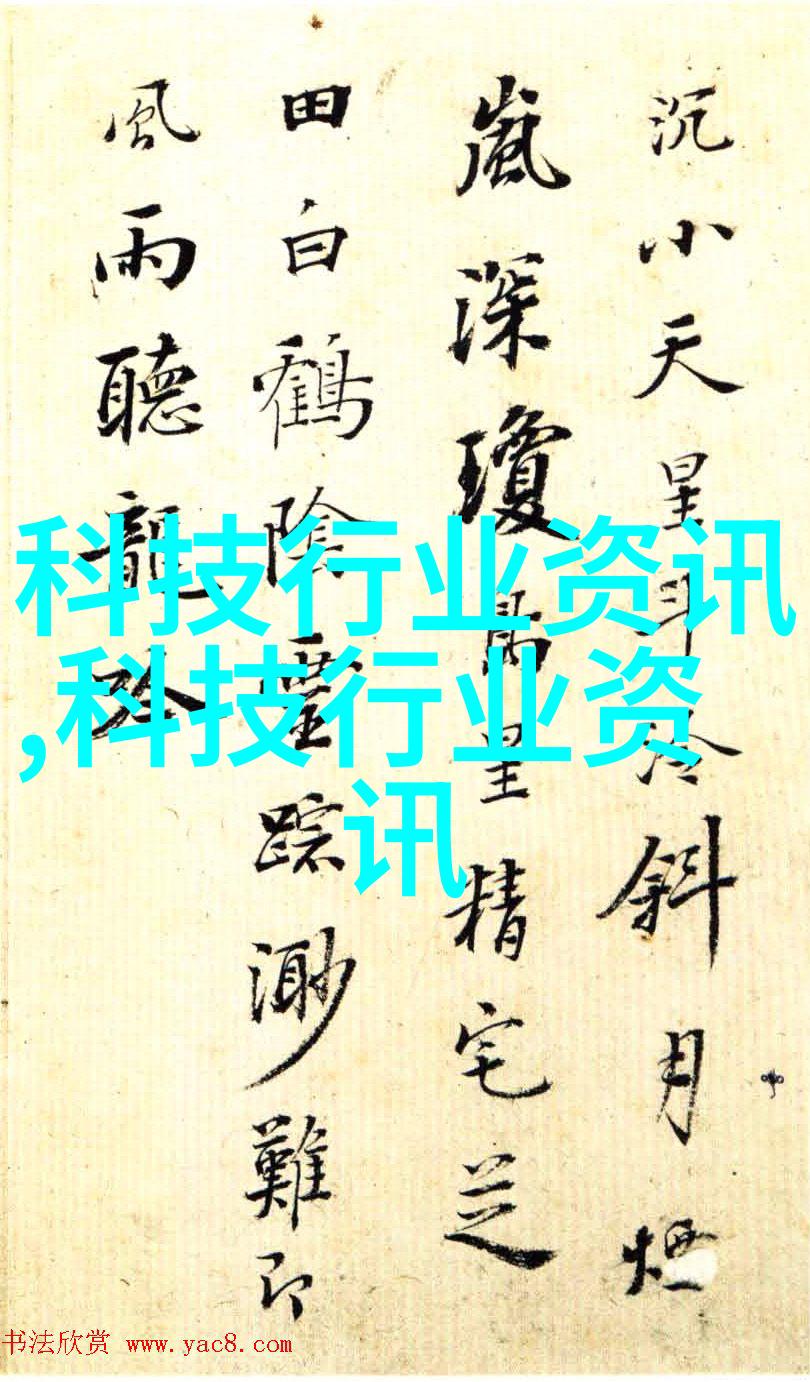 沉小天星斗冷斜月煙
嵐深瓊房星精宅芝
田白鶴陰塵踪渺難即
風雨聽龍吟
科技行业资讯
,科技行业资
讯
书法欣赏 www.yac8.com